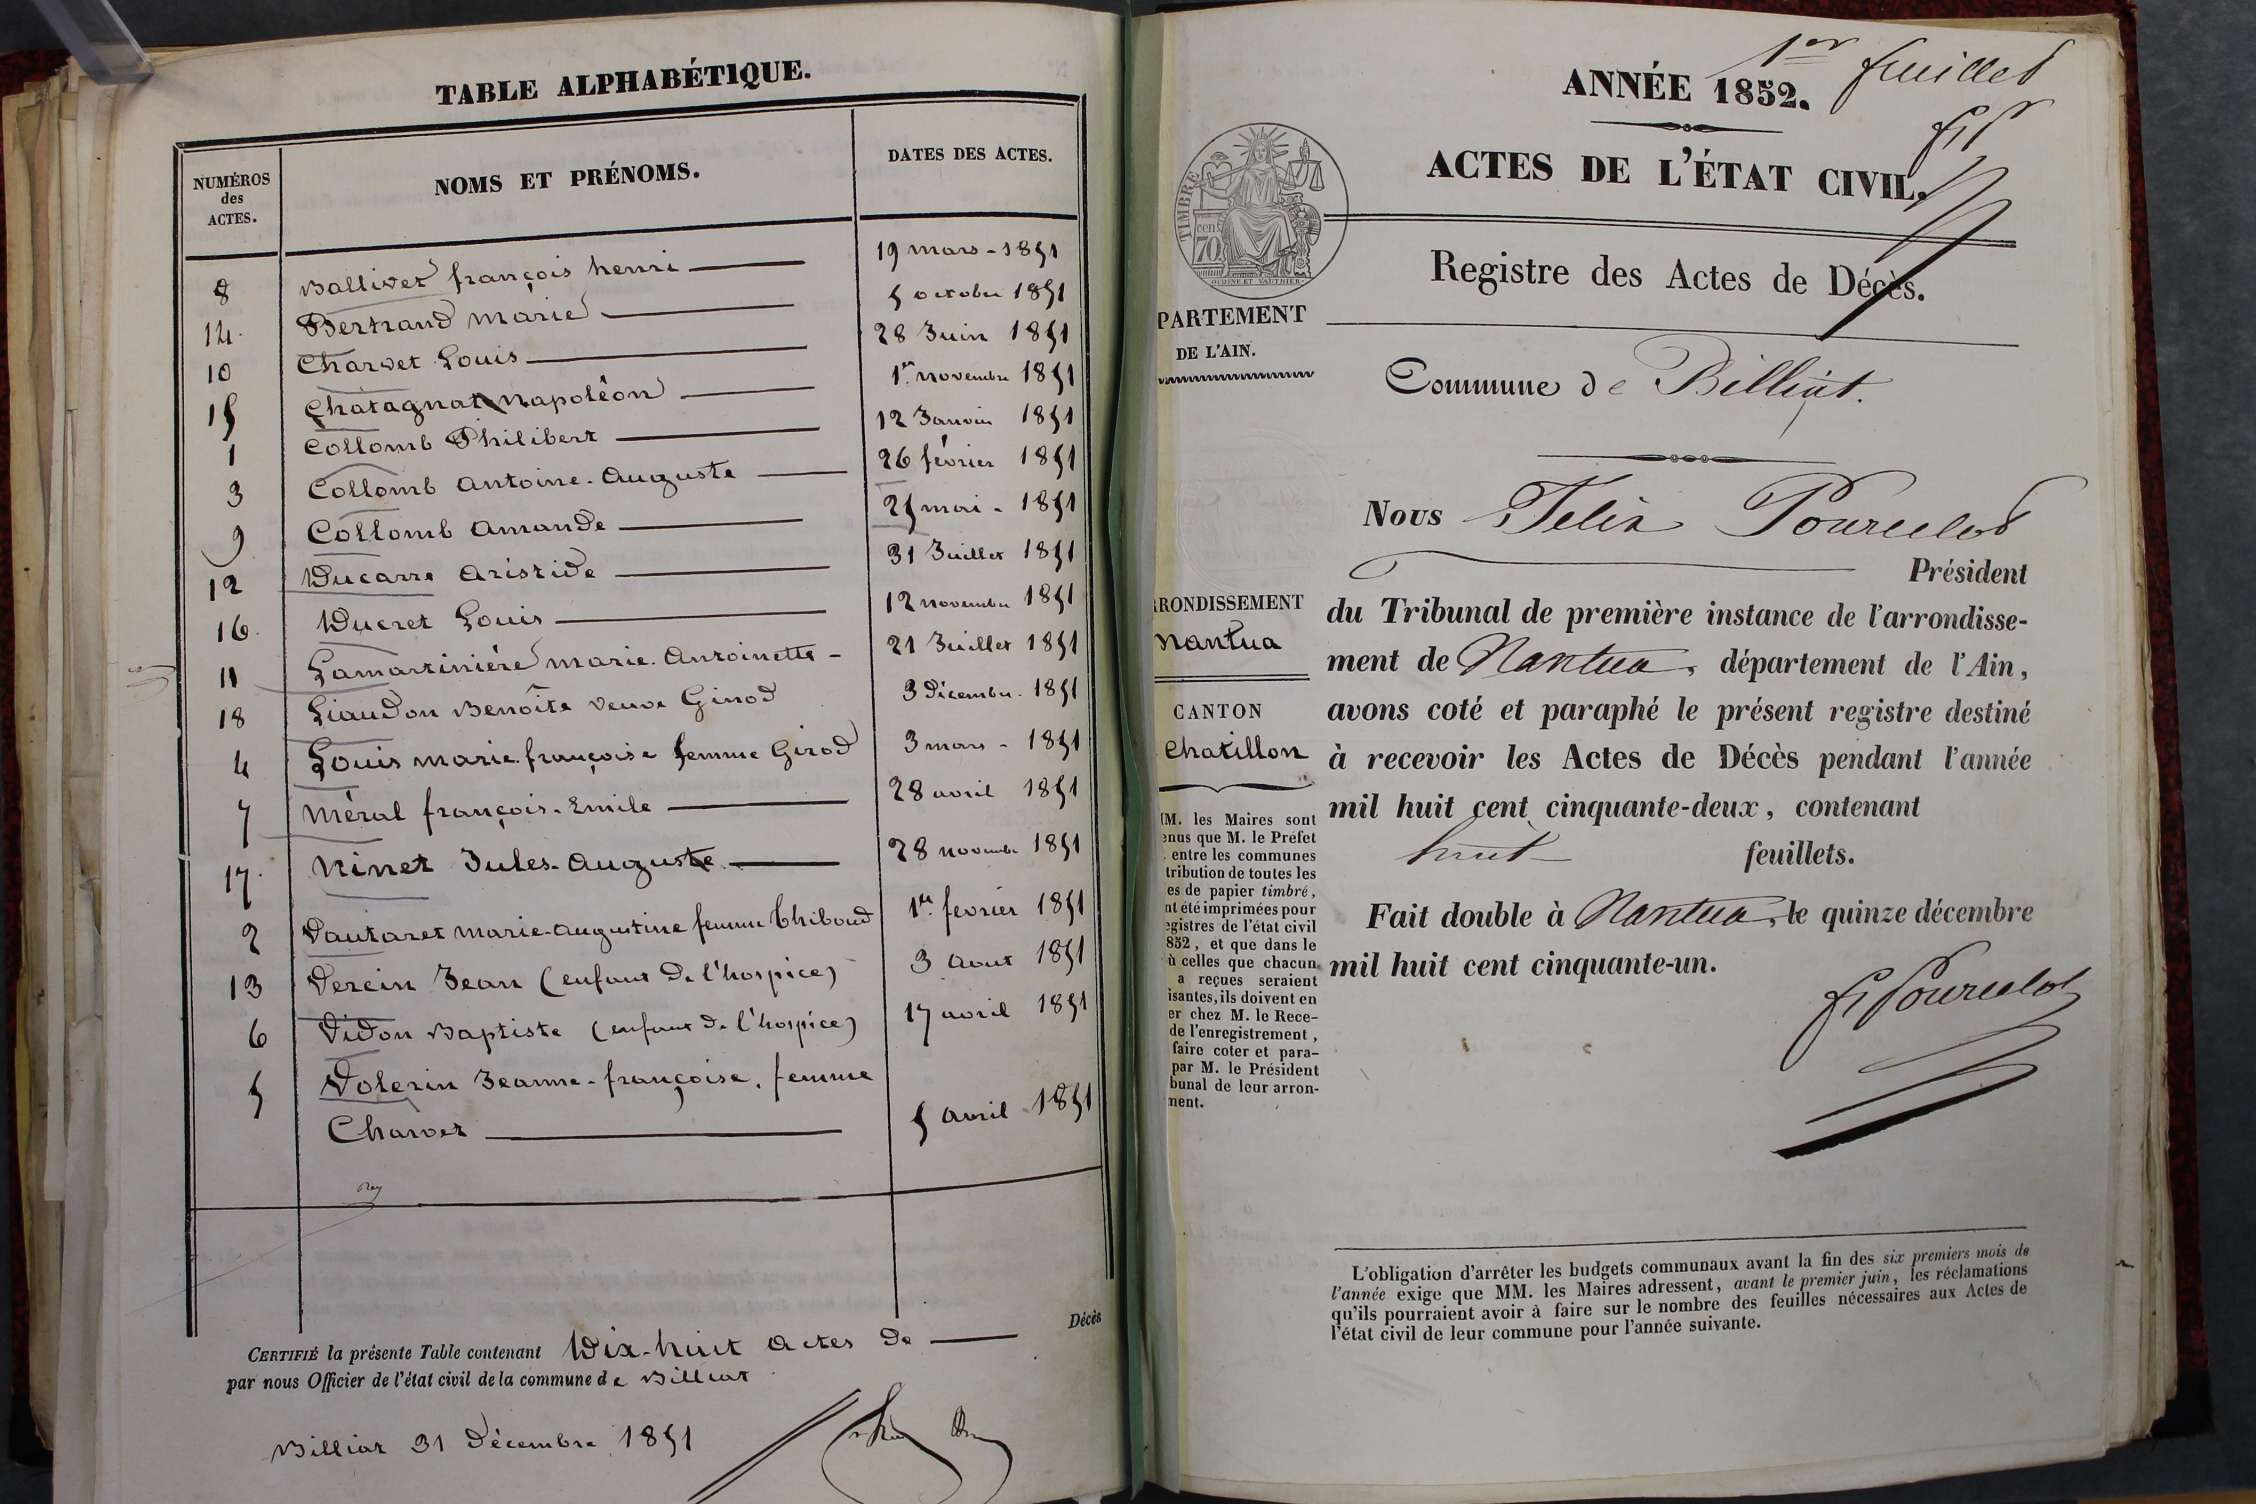 TABLE ALPHABÉTIQUE.
NUMÉROS des ACTES.
NOMS ET PRÉNOMS.
DATES DES ACTES.
8 Ballivet françois henri 19 mars - 1851
14. Bertrand marie 5 octobre 1851
10 Charvet Louis 28 Juin 1851
15 Chatagnat napoléon 1er novembre 1851
1 Collomb Philibert 12 Janvier 1851
3 Collomb Antoine-Auguste 26 février 1851
9 Collomb Amande 25 mai - 1851
12 Ducarre Aristide 31 Juillet 1851
16. Ducret Louis 12 novembre 1851
11 Lamartinière marie. Antoinette - 21 Juillet 1851
18 Liaudon Benoîte veuve Girod 3 Décembre. 1851
4 Louis marie françoise femme Girod 3 mars - 1851
7 Méral françois-Emile 28 avril 1851
17. Ninet Jules-Auguste 28 novembre 1851
2 Pautaret marie-augustine femme Thiboud 1er février 1851
13 Percin Jean (enfant De l'hospice) 3 Aout 1851
6 Didon Baptiste (enfant De l'hospice) 17 avril 1851
5 Volerin Jeanne-françoise. femme
Charvet 5 avril 1851
Décès
CERTIFIÉ la présente Table contenant Dix-huit actes De
par nous Officier de l'état civil de la commune de Billiat
Billiat 31 Décembre 1851
1er feuillet
ANNÉE 1852.
ACTES DE L'ÉTAT CIVIL.
TIMBRE
70 cent
OUDINE ET VAUTHIER
Registre des Actes de Décès.
PARTEMENT
DE L'AIN.
Commune de Billiat.
Nous Felix Pourcelot
Président
du Tribunal de première instance de l'arrondisse-
ment de Nantua, département de l'Ain,
avons coté et paraphé le présent registre destiné
à recevoir les Actes de Décès pendant l'année
mil huit cent cinquante-deux, contenant
huit feuillets.
Fait double à Nantua, le quinze décembre
mil huit cent cinquante-un.
F Pourcelot
RRONDISSEMENT
Nantua
CANTON
Chatillon
M. les Maires sont
enus que M. le Préfet
entre les communes
tribution de toutes les
es de papier timbré,
nt été imprimées pour
egistres de l'état civil
852, et que dans le
ù celles que chacun
a reçues seraient
isantes, ils doivent en
er chez M. le Rece-
de l'enregistrement,
faire coter et para-
par M. le Président
bunal de leur arron-
ment.
L'obligation d'arrêter les budgets communaux avant la fin des six premiers mois de
l'année exige que MM. les Maires adressent, avant le premier juin, les réclamations
qu'ils pourraient avoir à faire sur le nombre des feuilles nécessaires aux Actes de
l'état civil de leur commune pour l'année suivante.